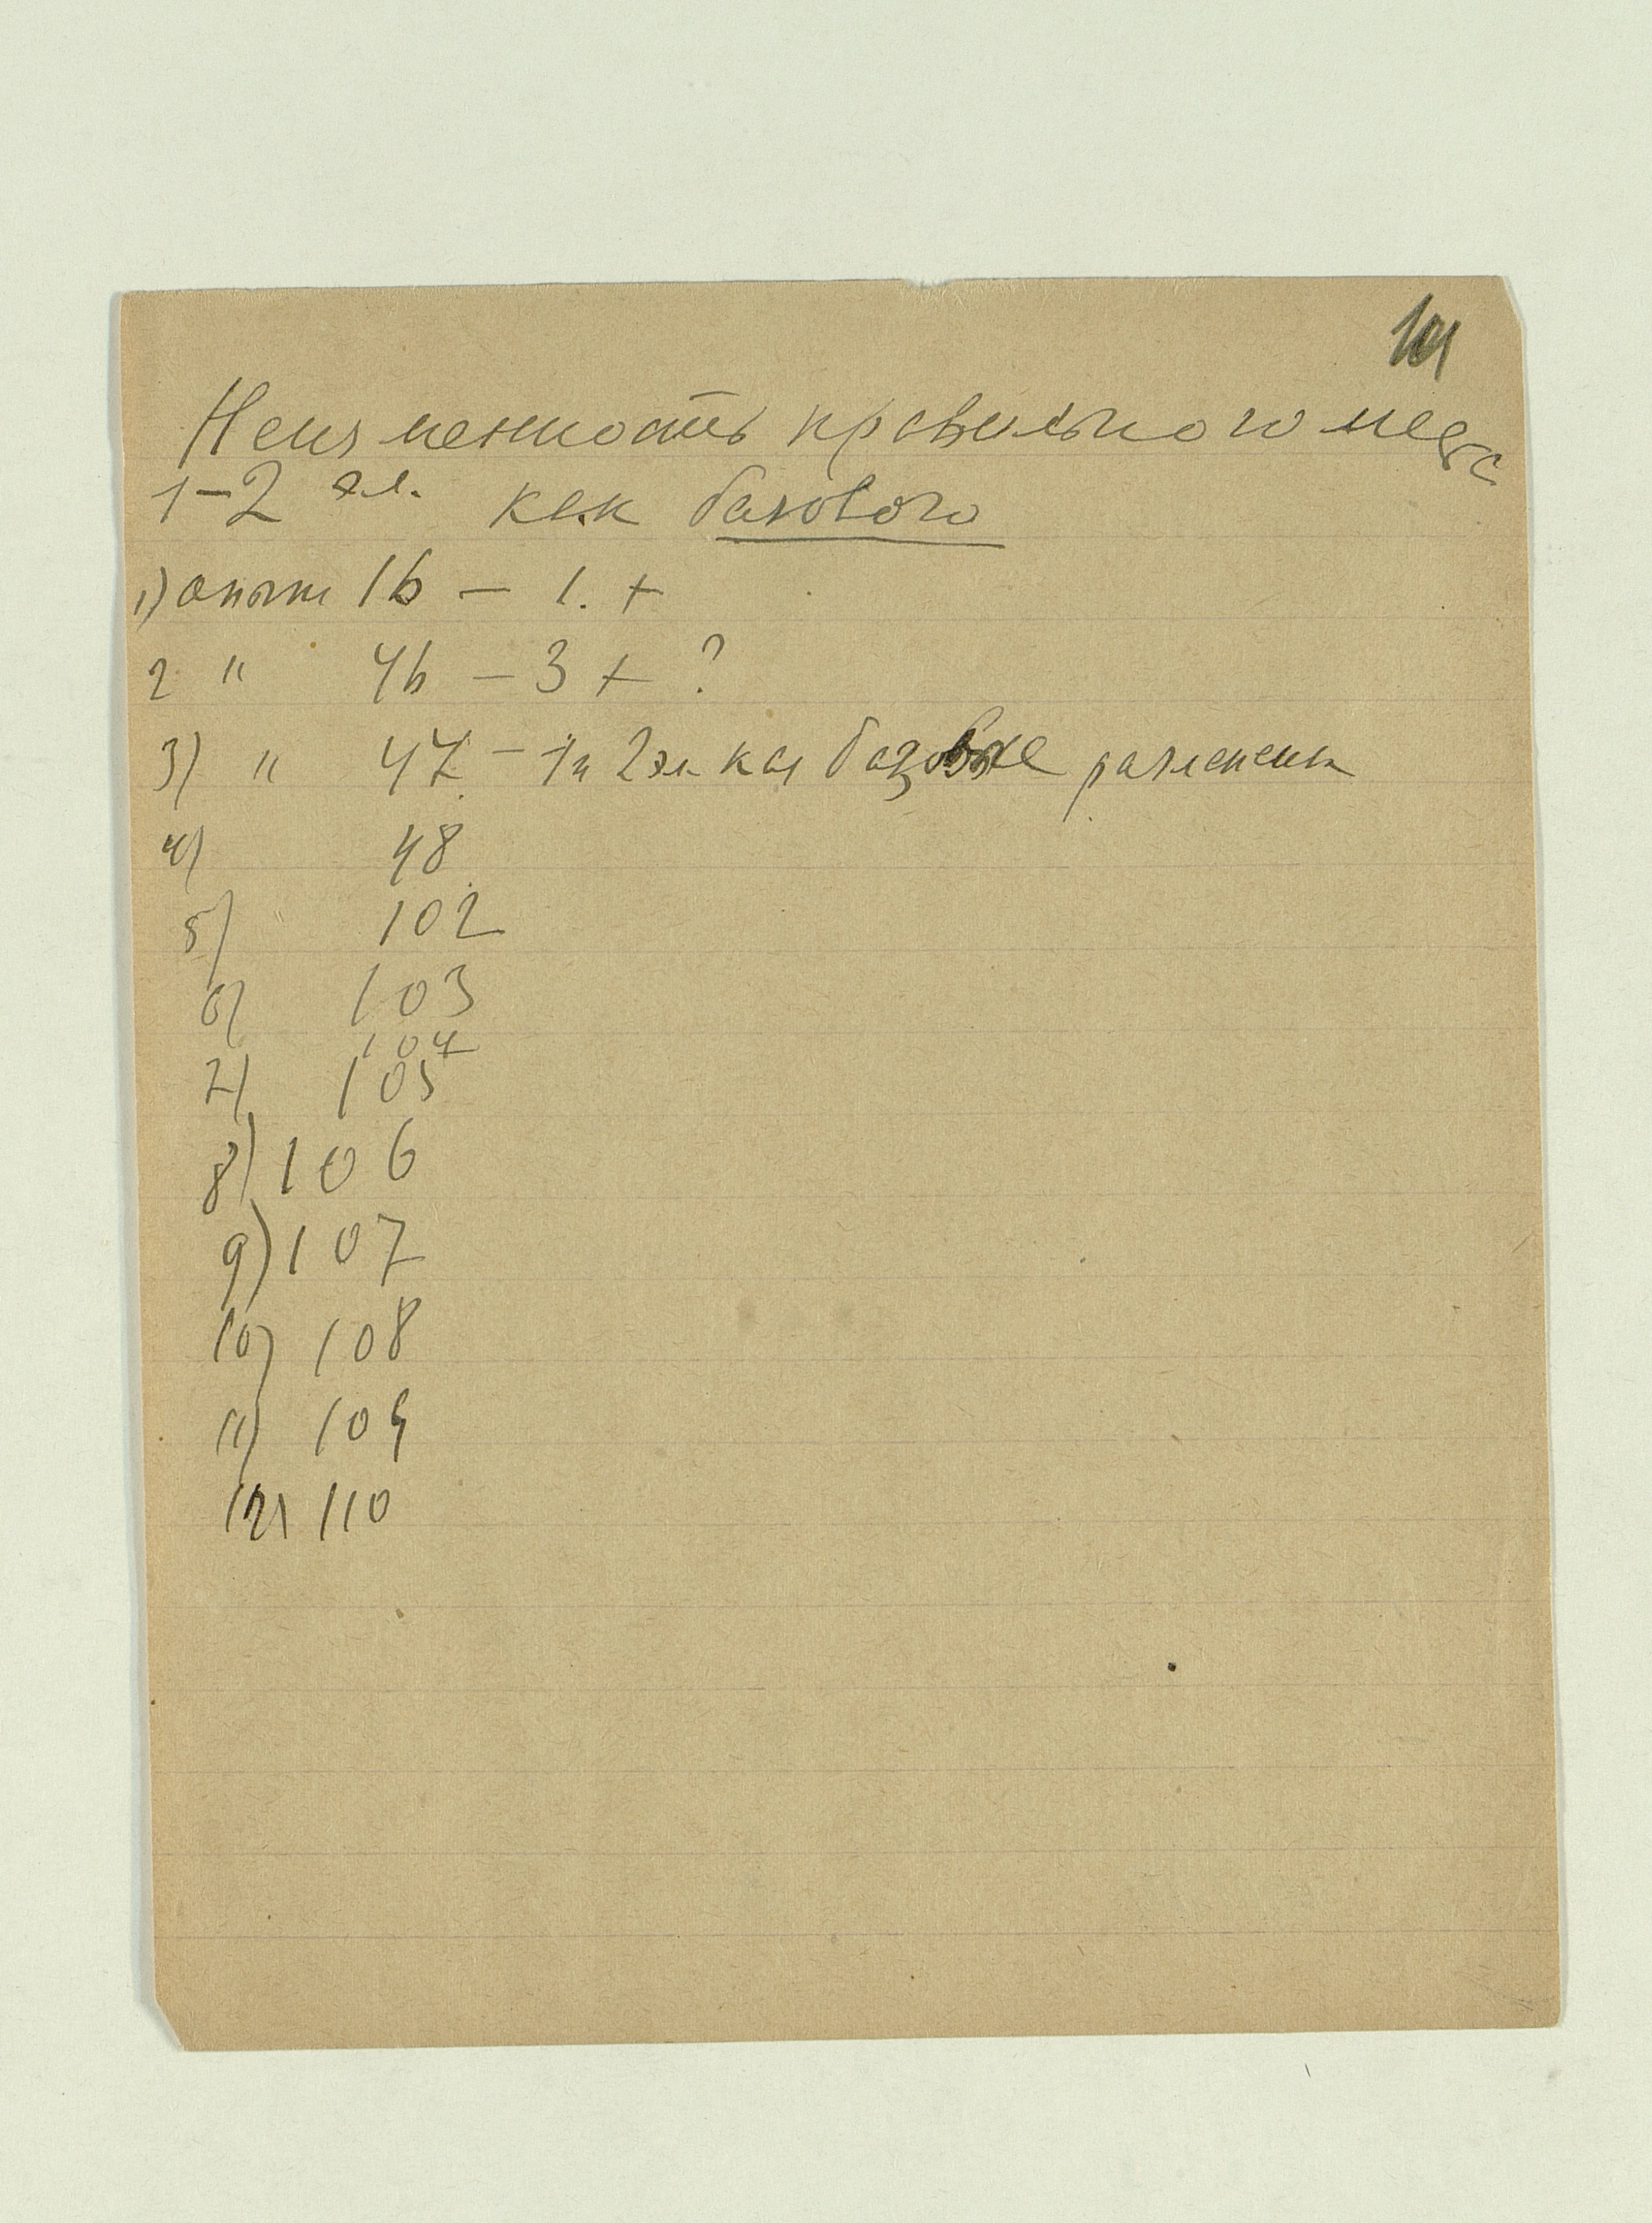 101
Неизменность правильного места
1-2 эл. как базового
1) опыт 16 — 1. +
2 " 46 — 3 + ?
3) " 47. — 1 и 2 эл как базовые
4) 48
5) " 102
6) 103
104
7) 105
8) 106
9) 107
10) 108
11) 109
12) 110